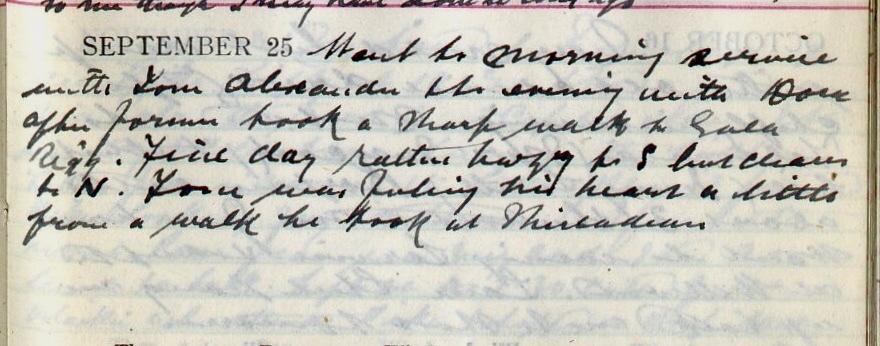 SEPTEMBER 25 Went to morning service
with Tom Alexander & to evening with Dora
after former took a sharp walk to Gala
Rigg. Fine day rather hazy to S but clear
to N. Tom was feeling his heart a little
from a walk he took at